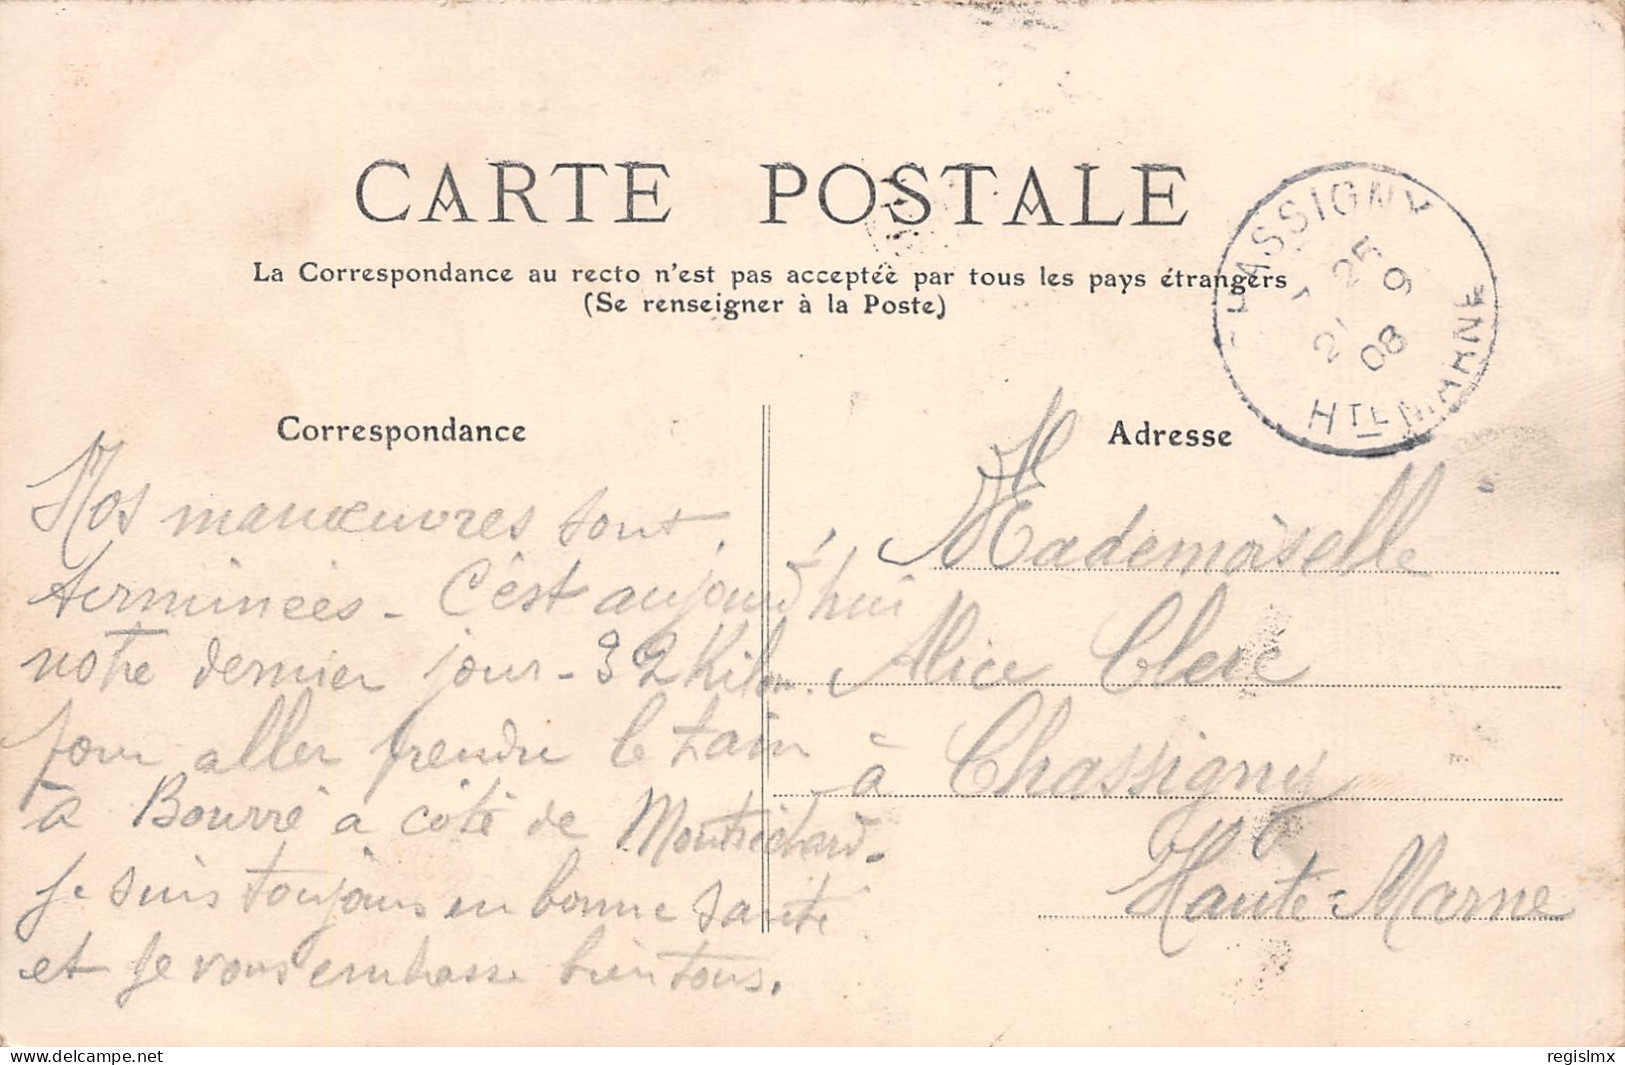 CARTE POSTALE
La Correspondance au recto n'est pas acceptée par tous les pays étrangers
(Se renseigner à la Poste)
CHASSIGNY
25
9
08
HTE MARNE
Correspondance
Nos manœuvres sont
terminées - C'est aujourd'hui
notre dernier jour - 32 Kilom.
pour aller prendre le train
à Bourré à côté de Montrichard -
Je suis toujours en bonne santé
et je vous embrasse bien tous.
Adresse
Mademoiselle
Alice Clerc
à Chassigny
Haute-Marne
www.delcampe.net
regislmx